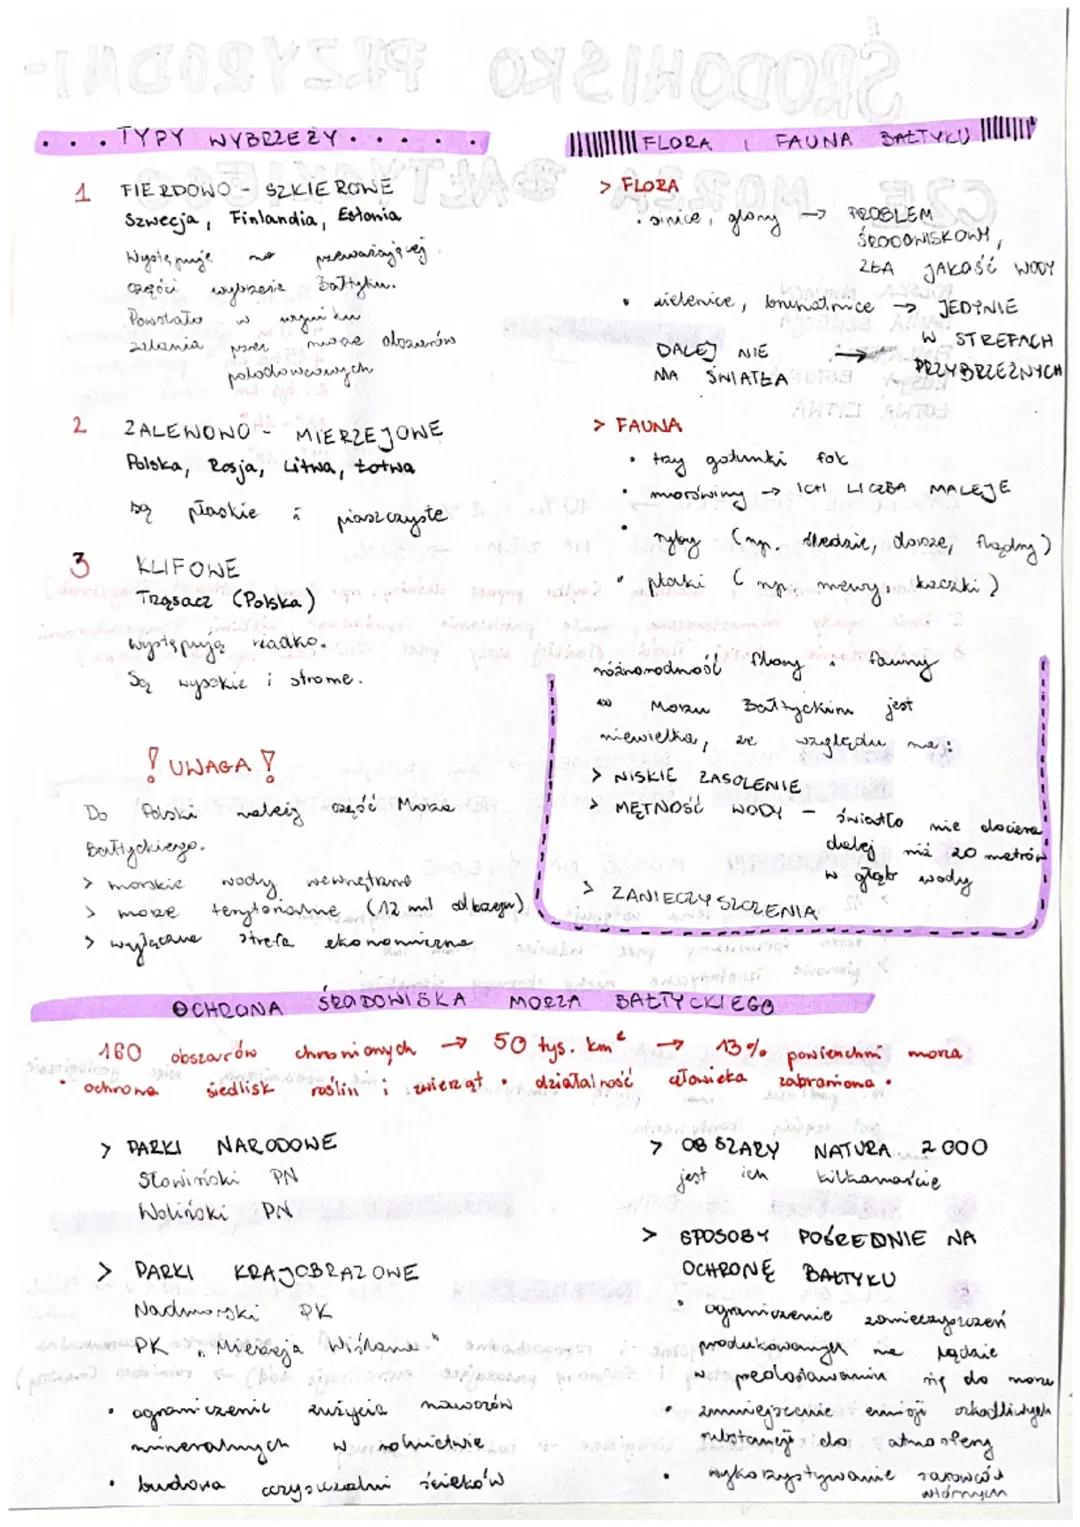 TYPY WYBRZEŻY
1 FIERDOWO - SZKIEROWE
Szwecja, Finlandia, Estonia
Występuje na przeważającej
części wybrzeża Bałtyku.
Powstało w wyniku
zalania przez morze obszarów
polodowcowych
2 ZALEWOWO - MIERZEJOWE
Polska, Rosja, Litwa, Łotwa
są płaskie i piaszczyste
3 KLIFOWE
Trzęsacz (Polska)
występują rzadko.
Są wysokie i strome.
! UWAGA !
Do Polski należy część Morza
Bałtyckiego.
> morskie wody wewnętrzne
> morze terytorialne (12 mil od brzegu)
> wyłączna strefa ekonomiczna
FLORA I FAUNA BAŁTYKU
> FLORA
• sinice, glony → PROBLEM
ŚRODOWISKOWY,
ZŁA JAKOŚĆ WODY
• zielenice, brunatnice → JEDYNIE
W STREFACH
PRZYBRZEŻNYCH
DALEJ NIE →
MA ŚWIATŁA
> FAUNA
• trzy gatunki fok
• morświny → ICH LICZBA MALEJE
• ryby (np. śledzie, dorsze, flądry)
• ptaki (np. mewy, kaczki)
różnorodność flory i fauny
w Morzu Bałtyckim jest
niewielka, ze względu na:
> NISKIE ZASOLENIE
> MĘTNOŚĆ WODY - światło nie dociera
dalej niż 20 metrów
w głąb wody
> ZANIECZYSZCZENIA
OCHRONA ŚRODOWISKA MORZA BAŁTYCKIEGO
160 obszarów chronionych → 50 tys. km² → 13% powierzchni morza
• ochrona siedlisk roślin i zwierząt • działalność człowieka zabroniona •
> PARKI NARODOWE
Słowiński PN
Woliński PN
> PARKI KRAJOBRAZOWE
Nadmorski PK
PK "Mierzeja Wiślana"
• ograniczenie zużycia nawozów
mineralnych w rolnictwie
• budowa oczyszczalni ścieków
> OBSZARY NATURA 2000
jest ich kilkanaście
> SPOSOBY POŚREDNIE NA
OCHRONĘ BAŁTYKU
• ograniczenie zanieczyszczeń
produkowanych na lądzie
w przedostawaniu się do morza
• zmniejszenie emisji szkodliwych
substancji do atmosfery
• wykorzystywanie surowców
wtórnych